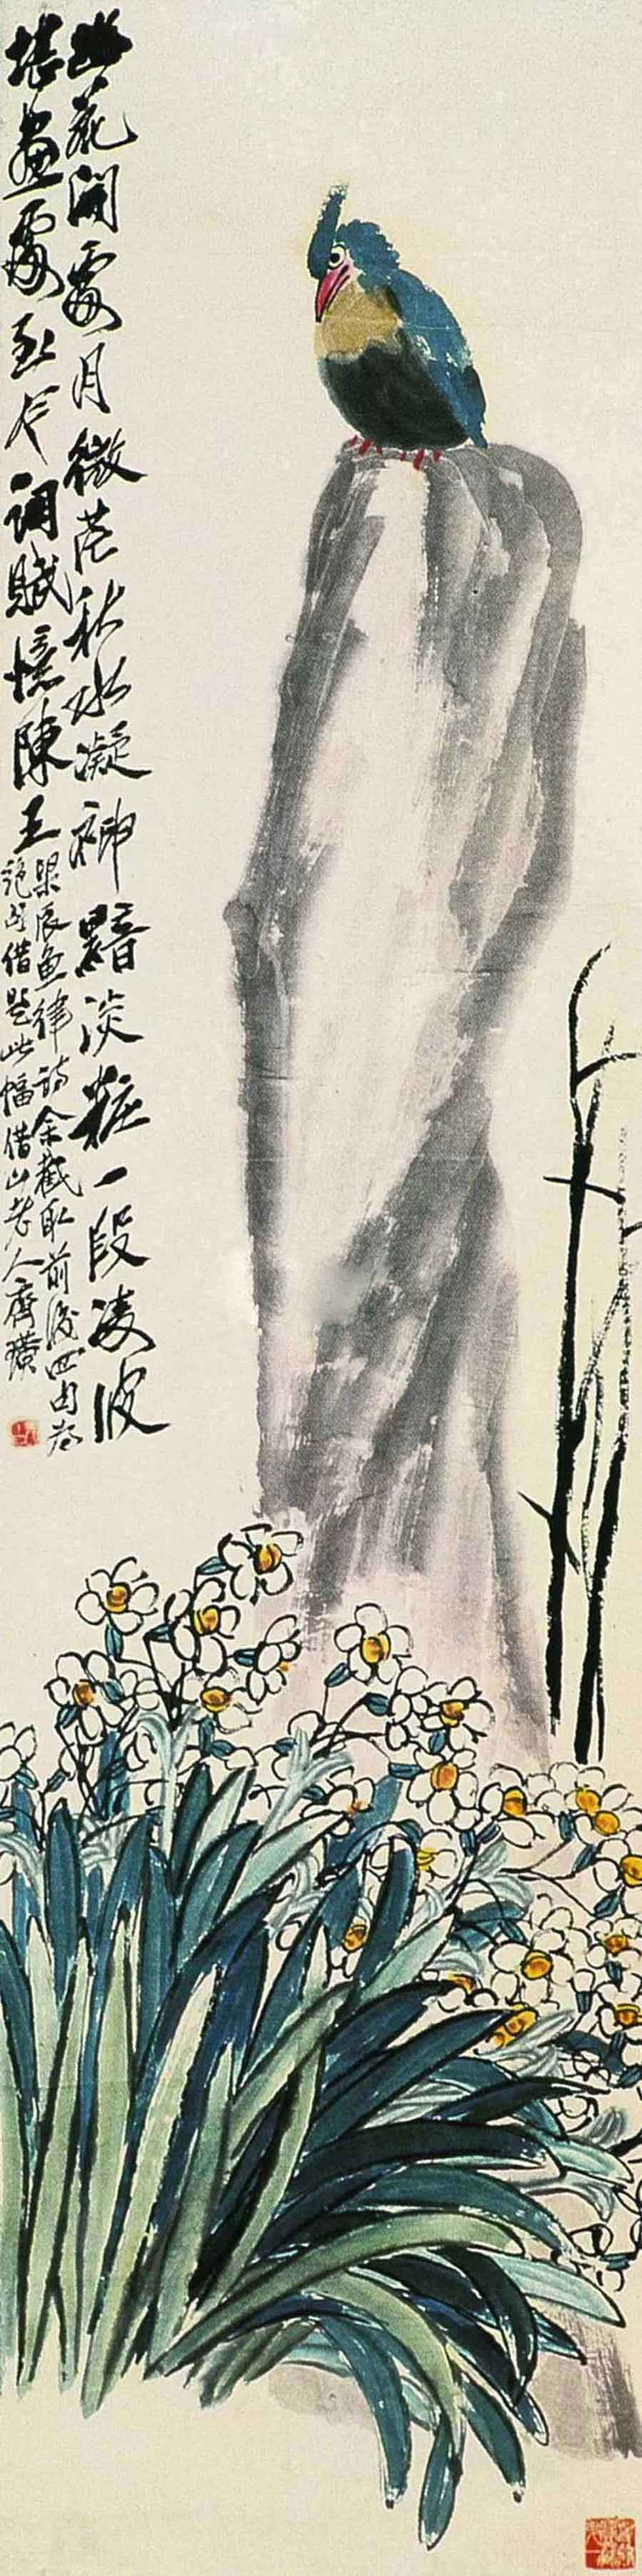 幽花開處月微茫秋水凝神黯淡粧一段凌波
堪畫處至今詞賦憶陳王
梁辰魚律詩余截取前後四句為
絕句借題此幅借山老人齊璜